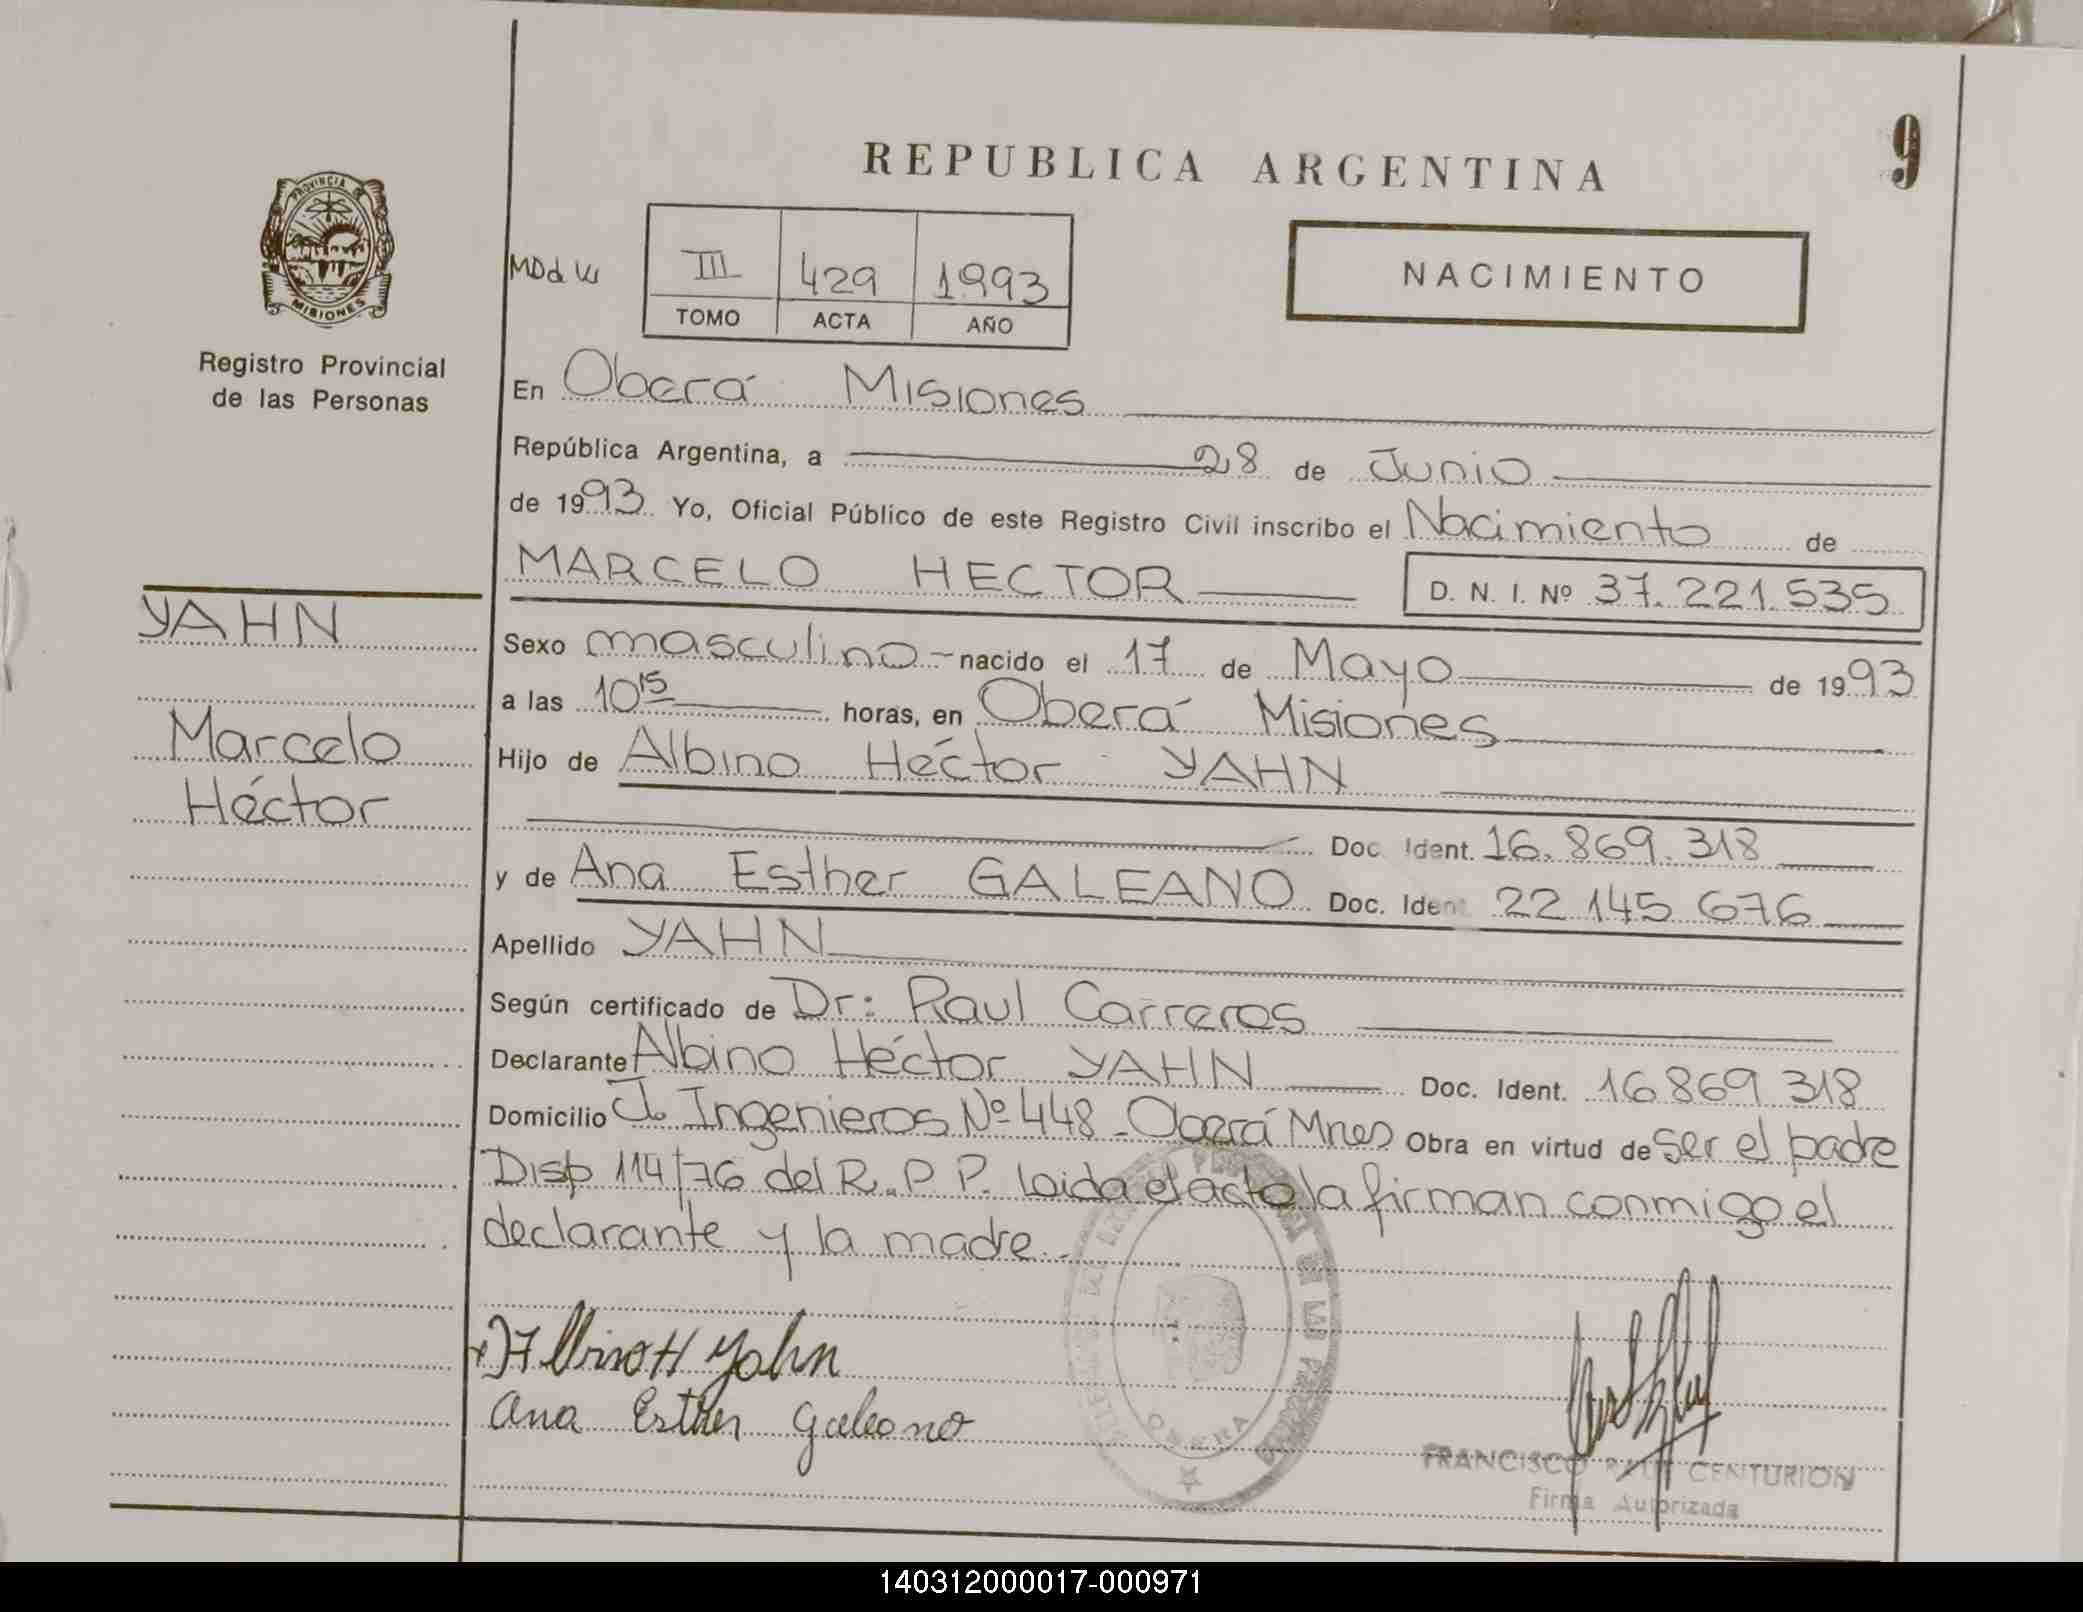 REPUBLICA ARGENTINA
9
PROVINCIA DE
MISIONES
Registro Provincial
de las Personas
III 429 1993
TOMO ACTA AÑO
NACIMIENTO
En Oberá Misiones
República Argentina, a 28 de Junio
de 1993 Yo, Oficial Público de este Registro Civil inscribo el Nacimiento de
MARCELO HECTOR D. N. I. Nº 37.221.535
YAHN
Marcelo
Héctor
Sexo masculino nacido el 17 de Mayo de 1993
a las 10 15 horas, en Oberá Misiones
Hijo de Albino Héctor YAHN
Doc. Ident. 16.869.318
y de Ana Esther GALEANO Doc. Ident 22 145 676
Apellido YAHN
Según certificado de Dr: Raul Carreros
Declarante Albino Héctor YAHN Doc. Ident. 16869 318
Domicilio J. Ingenieros Nº 448 - Oberá Mnes Obra en virtud de ser el padre
Disp 114/76 del R.P P. Leida el acto la firman conmigo el
declarante y la madre.
Albino H Yahn
Ana Esther Galeano
OBERA
FRANCISCO RAUL CENTURION
Firma Autorizada
140312000017-000971